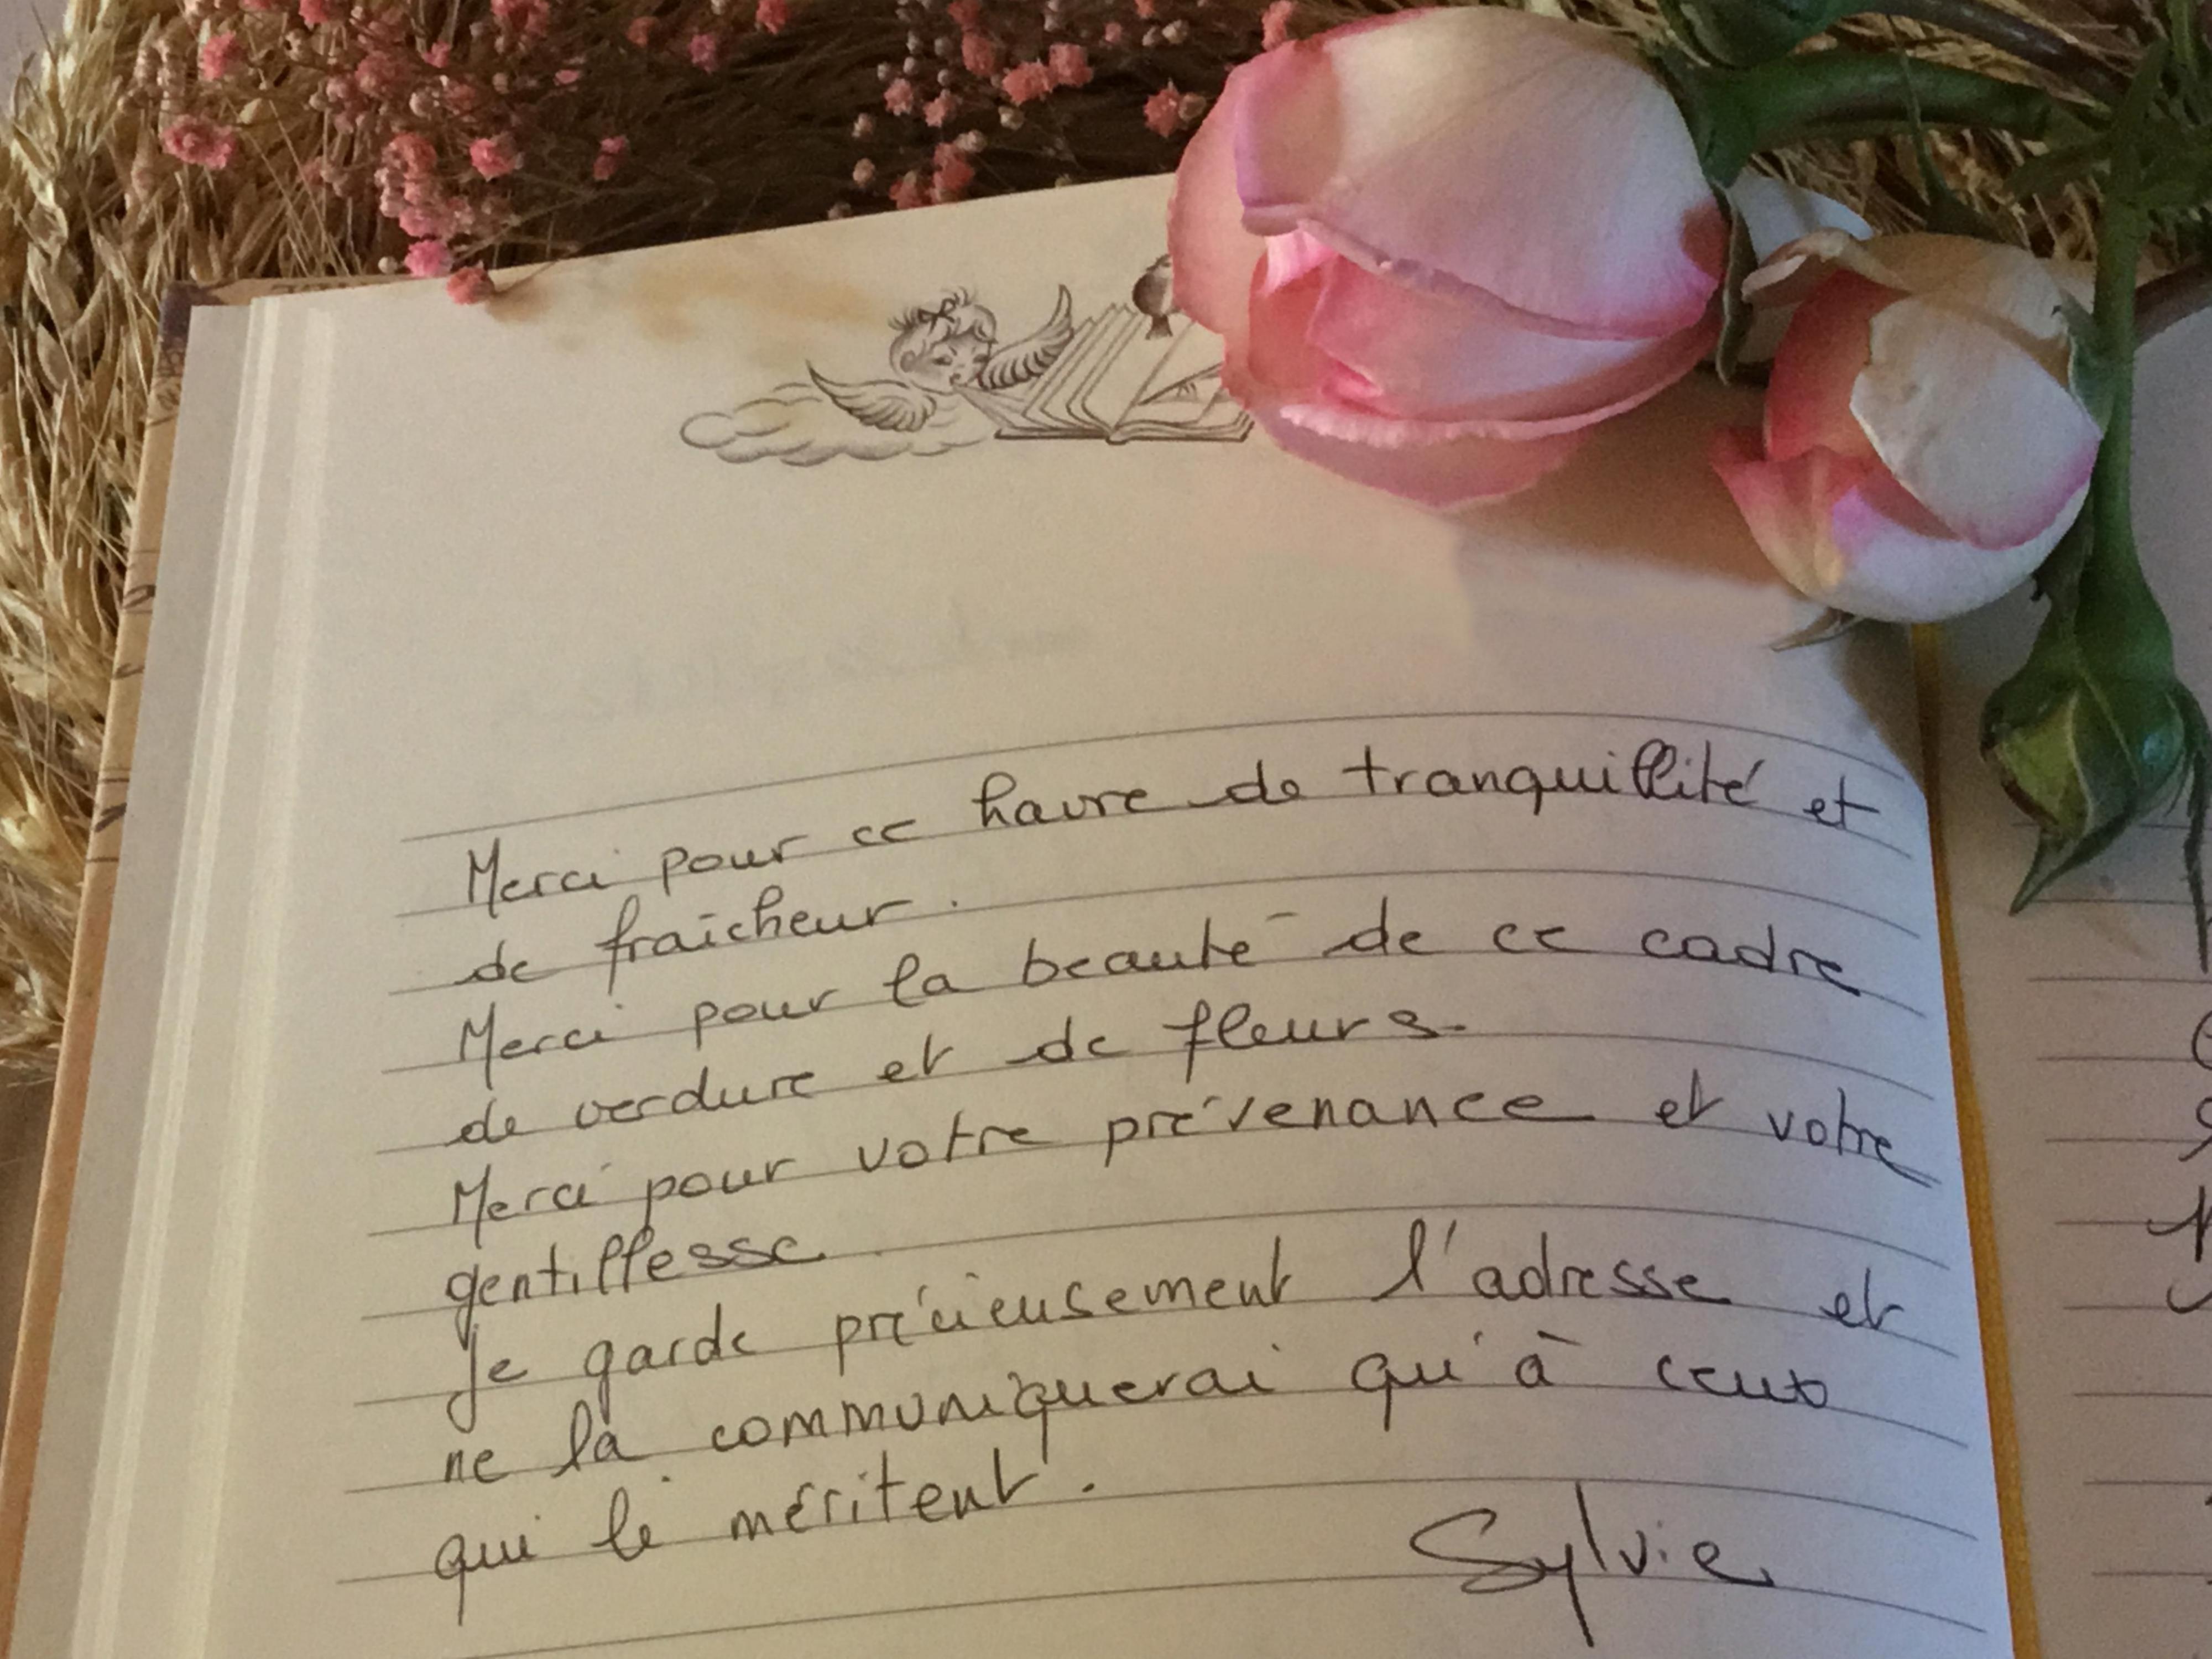 Merci pour ce havre de tranquillité et
de fraicheur.
Merci pour la beauté de ce cadre
de verdure et de fleurs.
Merci pour votre prévenance et votre
gentillesse.
Je garde précieusement l'adresse et
ne la communiquerai qu'à ceux
qui le méritent.
Sylvie